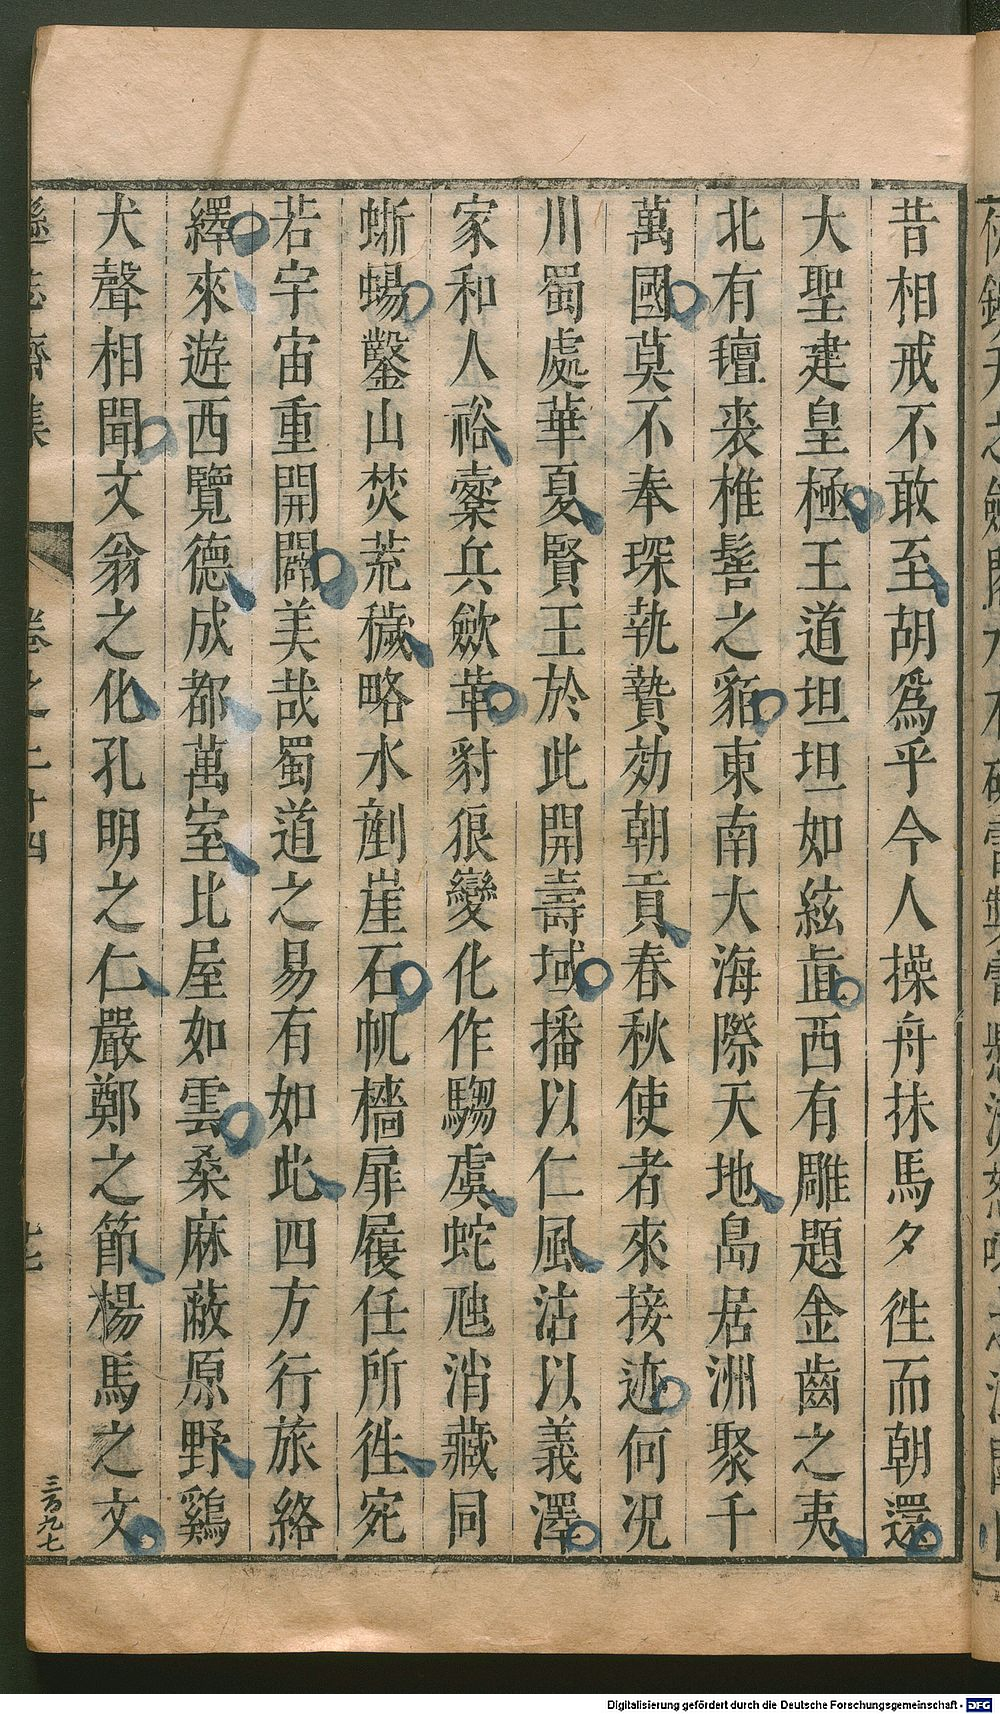 昔相戒不敢至胡爲乎今人操舟抹馬夕徃而朝還
大聖建皇極王道坦坦如絃直西有雕題金齒之夷
北有氊裘椎髻之貊東南大海際天地島居洲聚千
萬國莫不奉琛執贄効朝貢春秋使者來接迹何况
川蜀處華夏賢王於此開壽域播以仁風沾以義澤
家和人裕櫜兵歛革豺狼變化作騶虞蛇虺消藏同
蜥蜴鑿山焚荒穢略水剷崖石帆檣扉屨任所徃宛
若宇宙重開闢美哉蜀道之易有如此四方行旅絡
繹來遊西覽德成都萬室比屋如雲桑麻蔽原野鷄
犬聲相聞文翁之化孔明之仁嚴鄭之節楊馬之文
遜志齋集 卷之二十四
三百九七
Digitalisierung gefördert durch die Deutsche Forschungsgemeinschaft - DFG